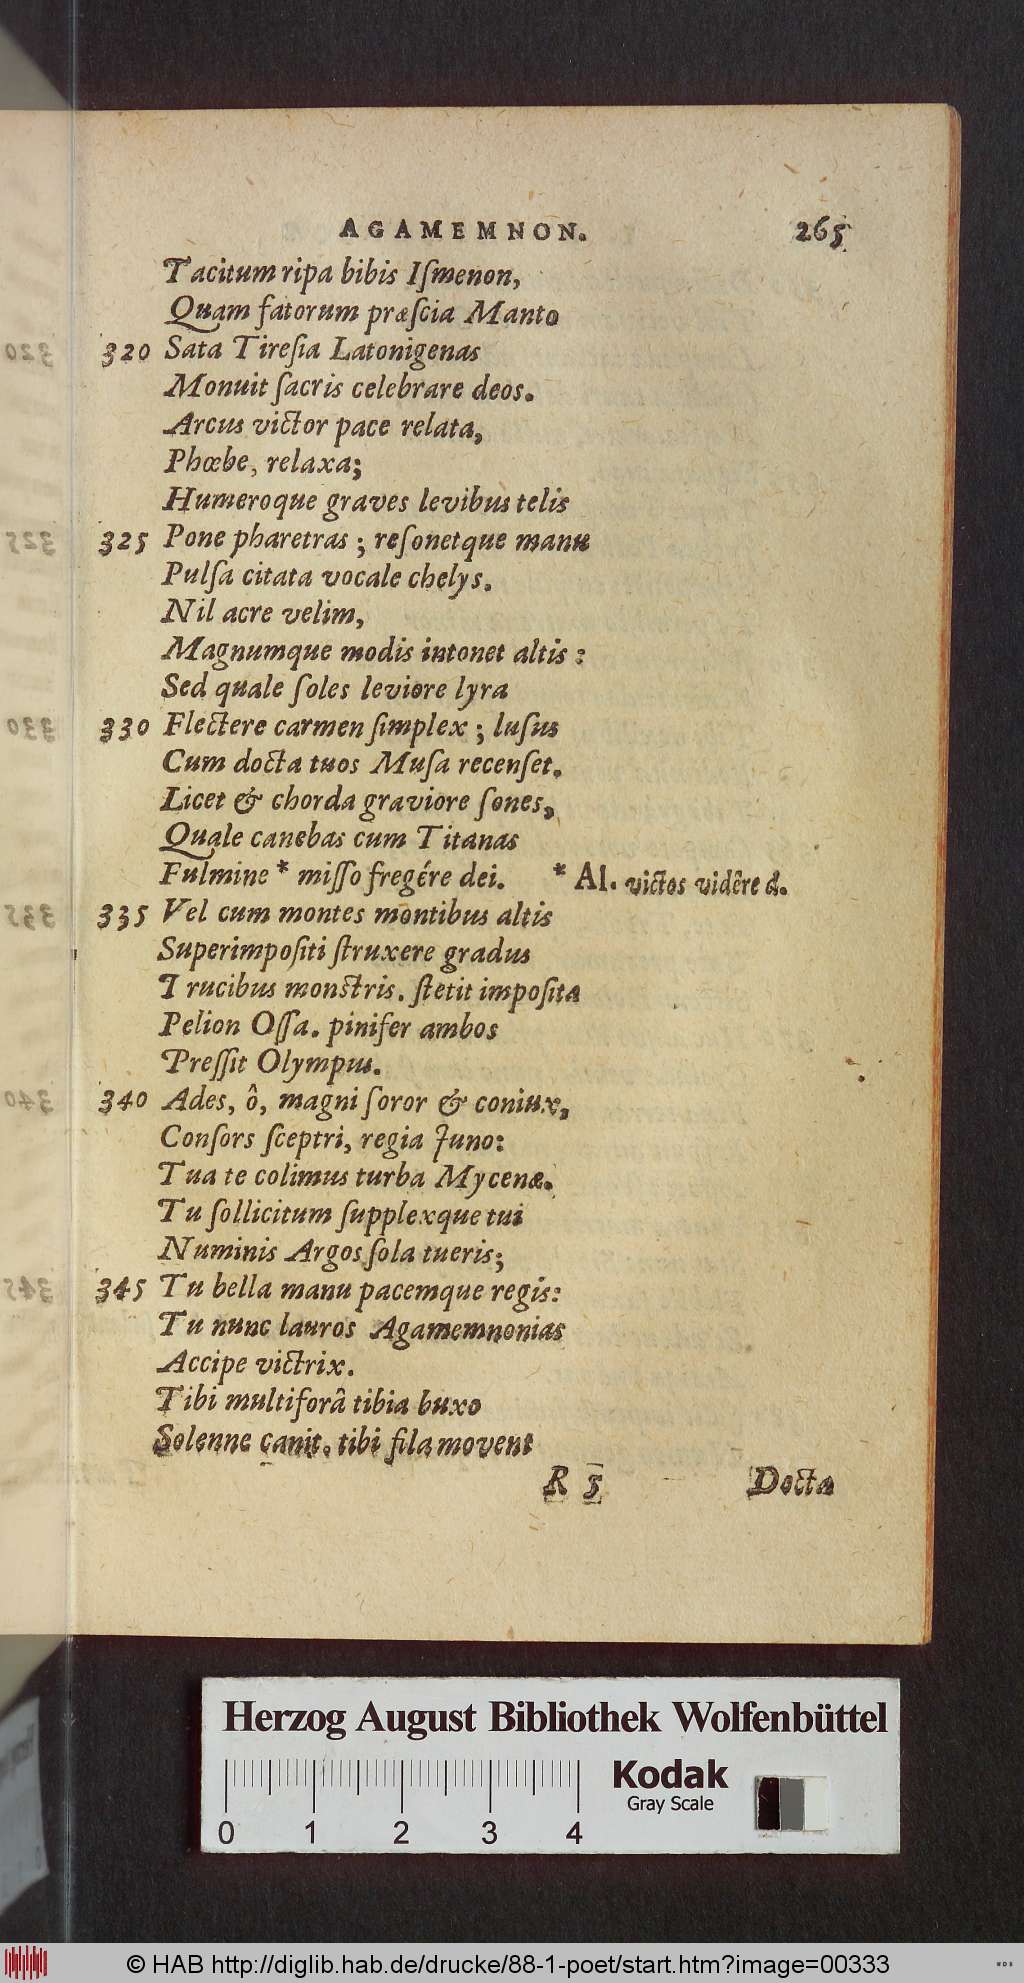 AGAMEMNON. 265
Tacitum ripa bibis Iſmenon,
Quam fatorum præſcia Manto
320 Sata Tireſia Latonigenas
Monuit ſacris celebrare deos.
Arcus victor pace relata,
Phœbe, relaxa;
Humeroque graves levibus telis
325 Pone pharetras; reſonetque manu
Pulſa citata vocale chelys.
Nil acre velim,
Magnumque modis intonet altis:
Sed quale ſoles leviore lyra
330 Flectere carmen ſimplex; luſus
Cum docta tuos Muſa recenſet.
Licet & chorda graviore ſones,
Quale canebas cum Titanas
Fulmine * miſſo fregére dei. * Al. victos vidêre d.
335 Vel cum montes montibus altis
Superimpoſiti ſtruxere gradus
Trucibus monstris. ſtetit impoſita
Pelion Oſſa. pinifer ambos
Preſſit Olympus.
340 Ades, ô, magni ſoror & coniux,
Conſors ſceptri, regia Juno:
Tua te colimus turba Mycenæ.
Tu ſollicitum ſupplexque tui
Numinis Argos ſola tueris;
345 Tu bella manu pacemque regis:
Tu nunc lauros Agamemnonias
Accipe victrix.
Tibi multiforâ tibia buxo
Solenne canit. tibi fila movent
R 5 Docta
Herzog August Bibliothek Wolfenbüttel
Kodak
Gray Scale
0 1 2 3 4
© HAB http://diglib.hab.de/drucke/88-1-poet/start.htm?image=00333